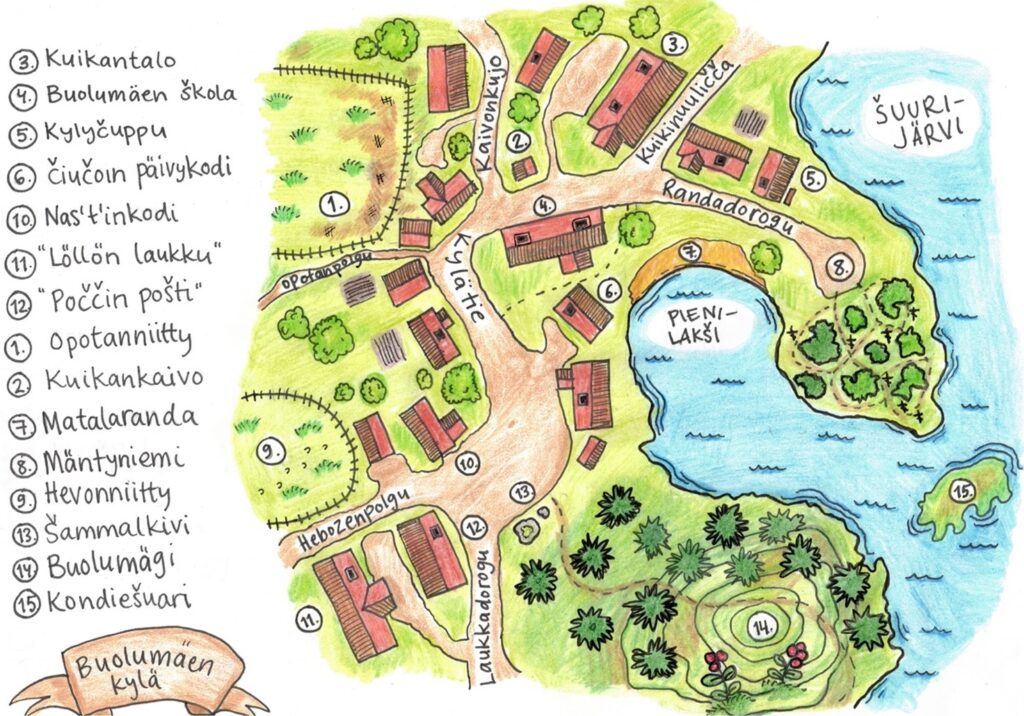 3. Kuikantalo
4. Buolumäen škola
5. Kylyčuppu
6. Čiučoin päivykodi
10. Nas't'inkodi
11. "Löllön laukku"
12. "Poččin pošti"
1. Opotanniitty
2 Kuikankaivo
7. Matalaranda
8. Mäntyniemi
9. Hevonniitty
13. Šammalkivi
14. Buolumägi
15. Kondiešuari
Buolumäen
kylä
3.
Kaivonkujo
Kuikinuuličča
2.
ŠUURI-
JÄRVI
1.
4.
5.
Randadorogu
Opotanpolgu
Kylätie
7.
8.
6.
PIENI-
LAKŠI
9.
10.
13.
15.
Hebozenpolgu
12.
Laukkadorogu
11.
14.